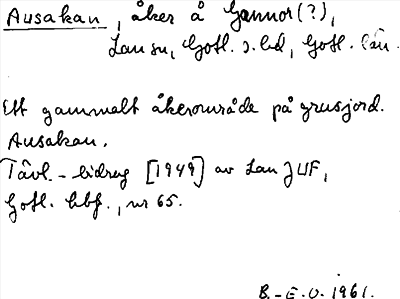 Ausakan, åker å Gannor(?),
Lau sn, Gotl. s. hd, Gotl. län.
Ett gammalt åkerområde på grusjord.
Ausakan.
Tävl.-bidrag [1949] av Lau JUF,
Gotl. hbf., nr 65.
B.-E.O. 1961.